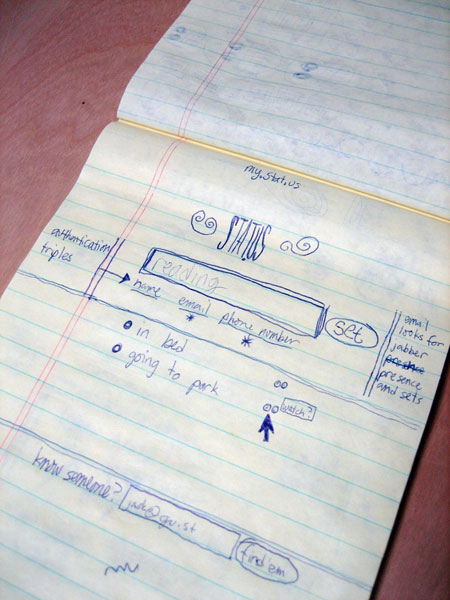 my.stat.us
STAT.US
authentication
triples
reading
set
name
email
phone number
in bed
going to park
watch?
email
looks for
jabber
presence
and sets
know someone?
find 'em